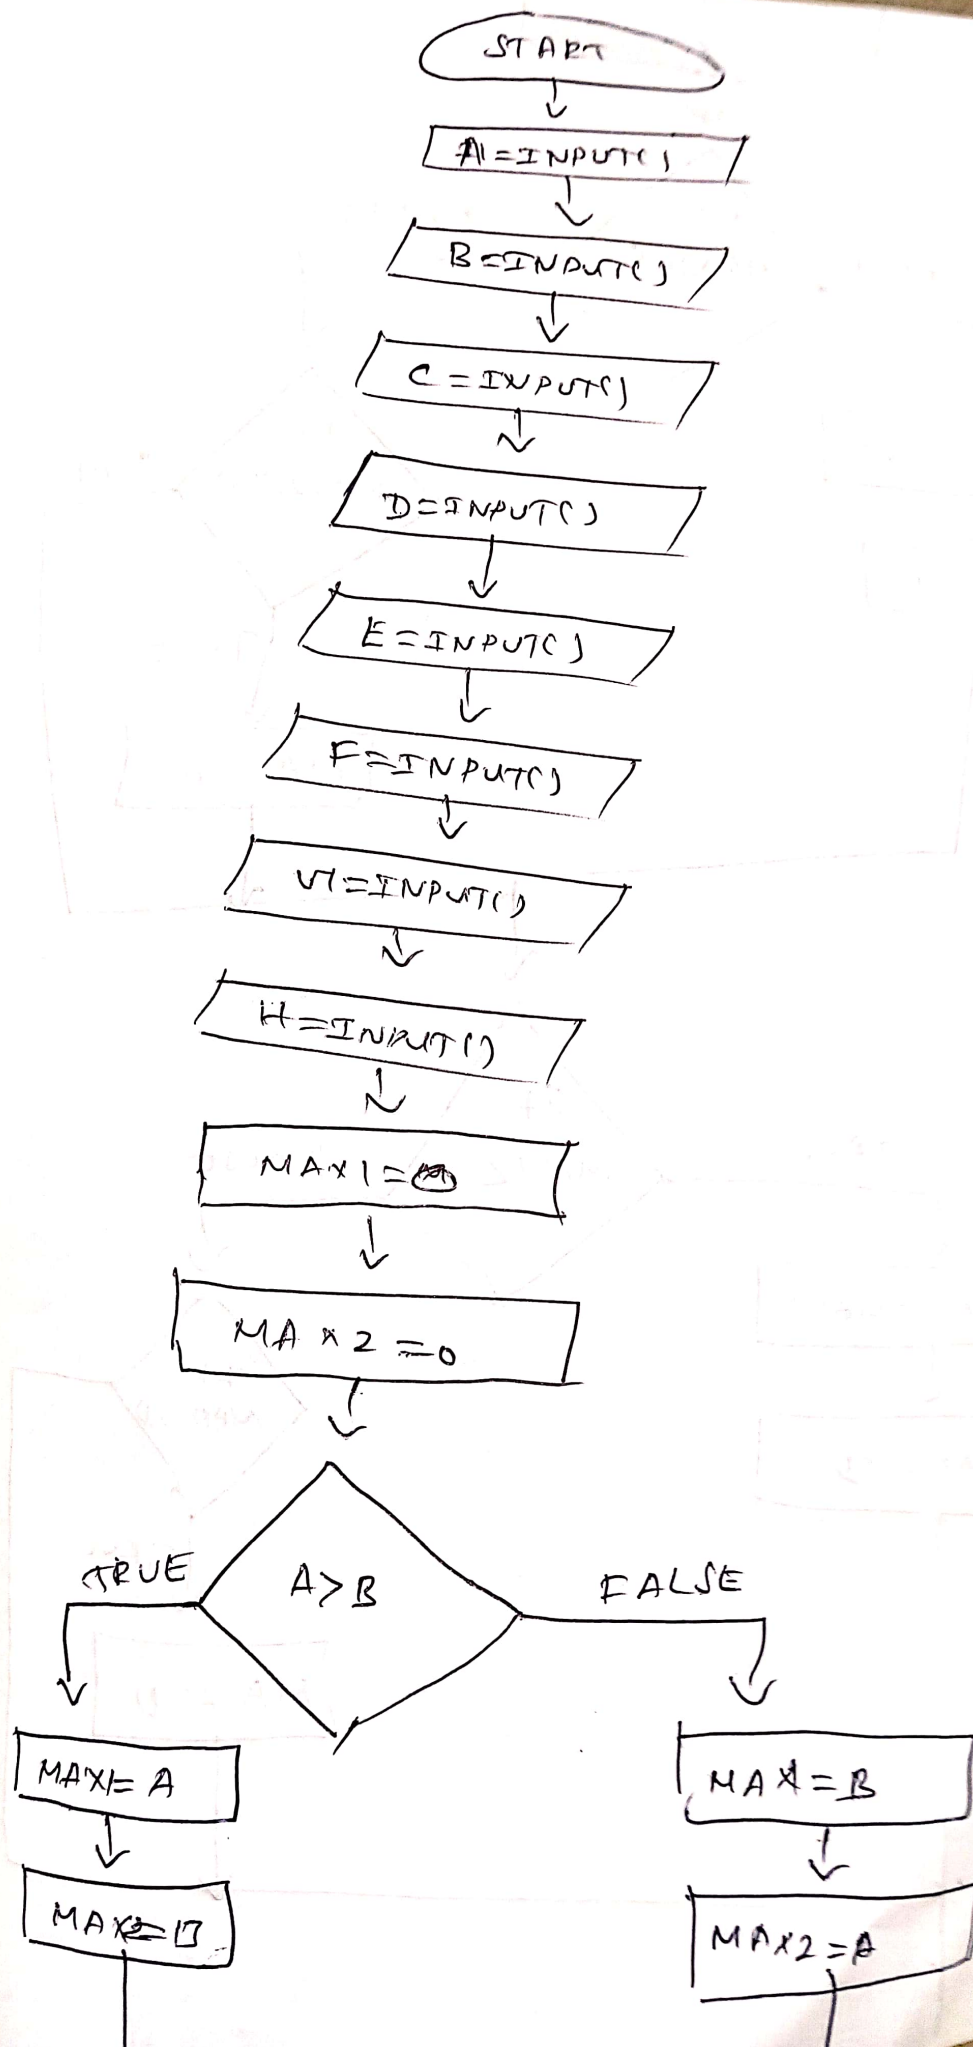 START
A=INPUT()
B=INPUT()
C=INPUT()
D=INPUT()
E=INPUT()
F=INPUT()
G=INPUT()
H=INPUT()
MAX1=
MAX2=0
A>B
TRUE
FALSE
MAX1=A
MAX1=B
MAX2=B
MAX2=A